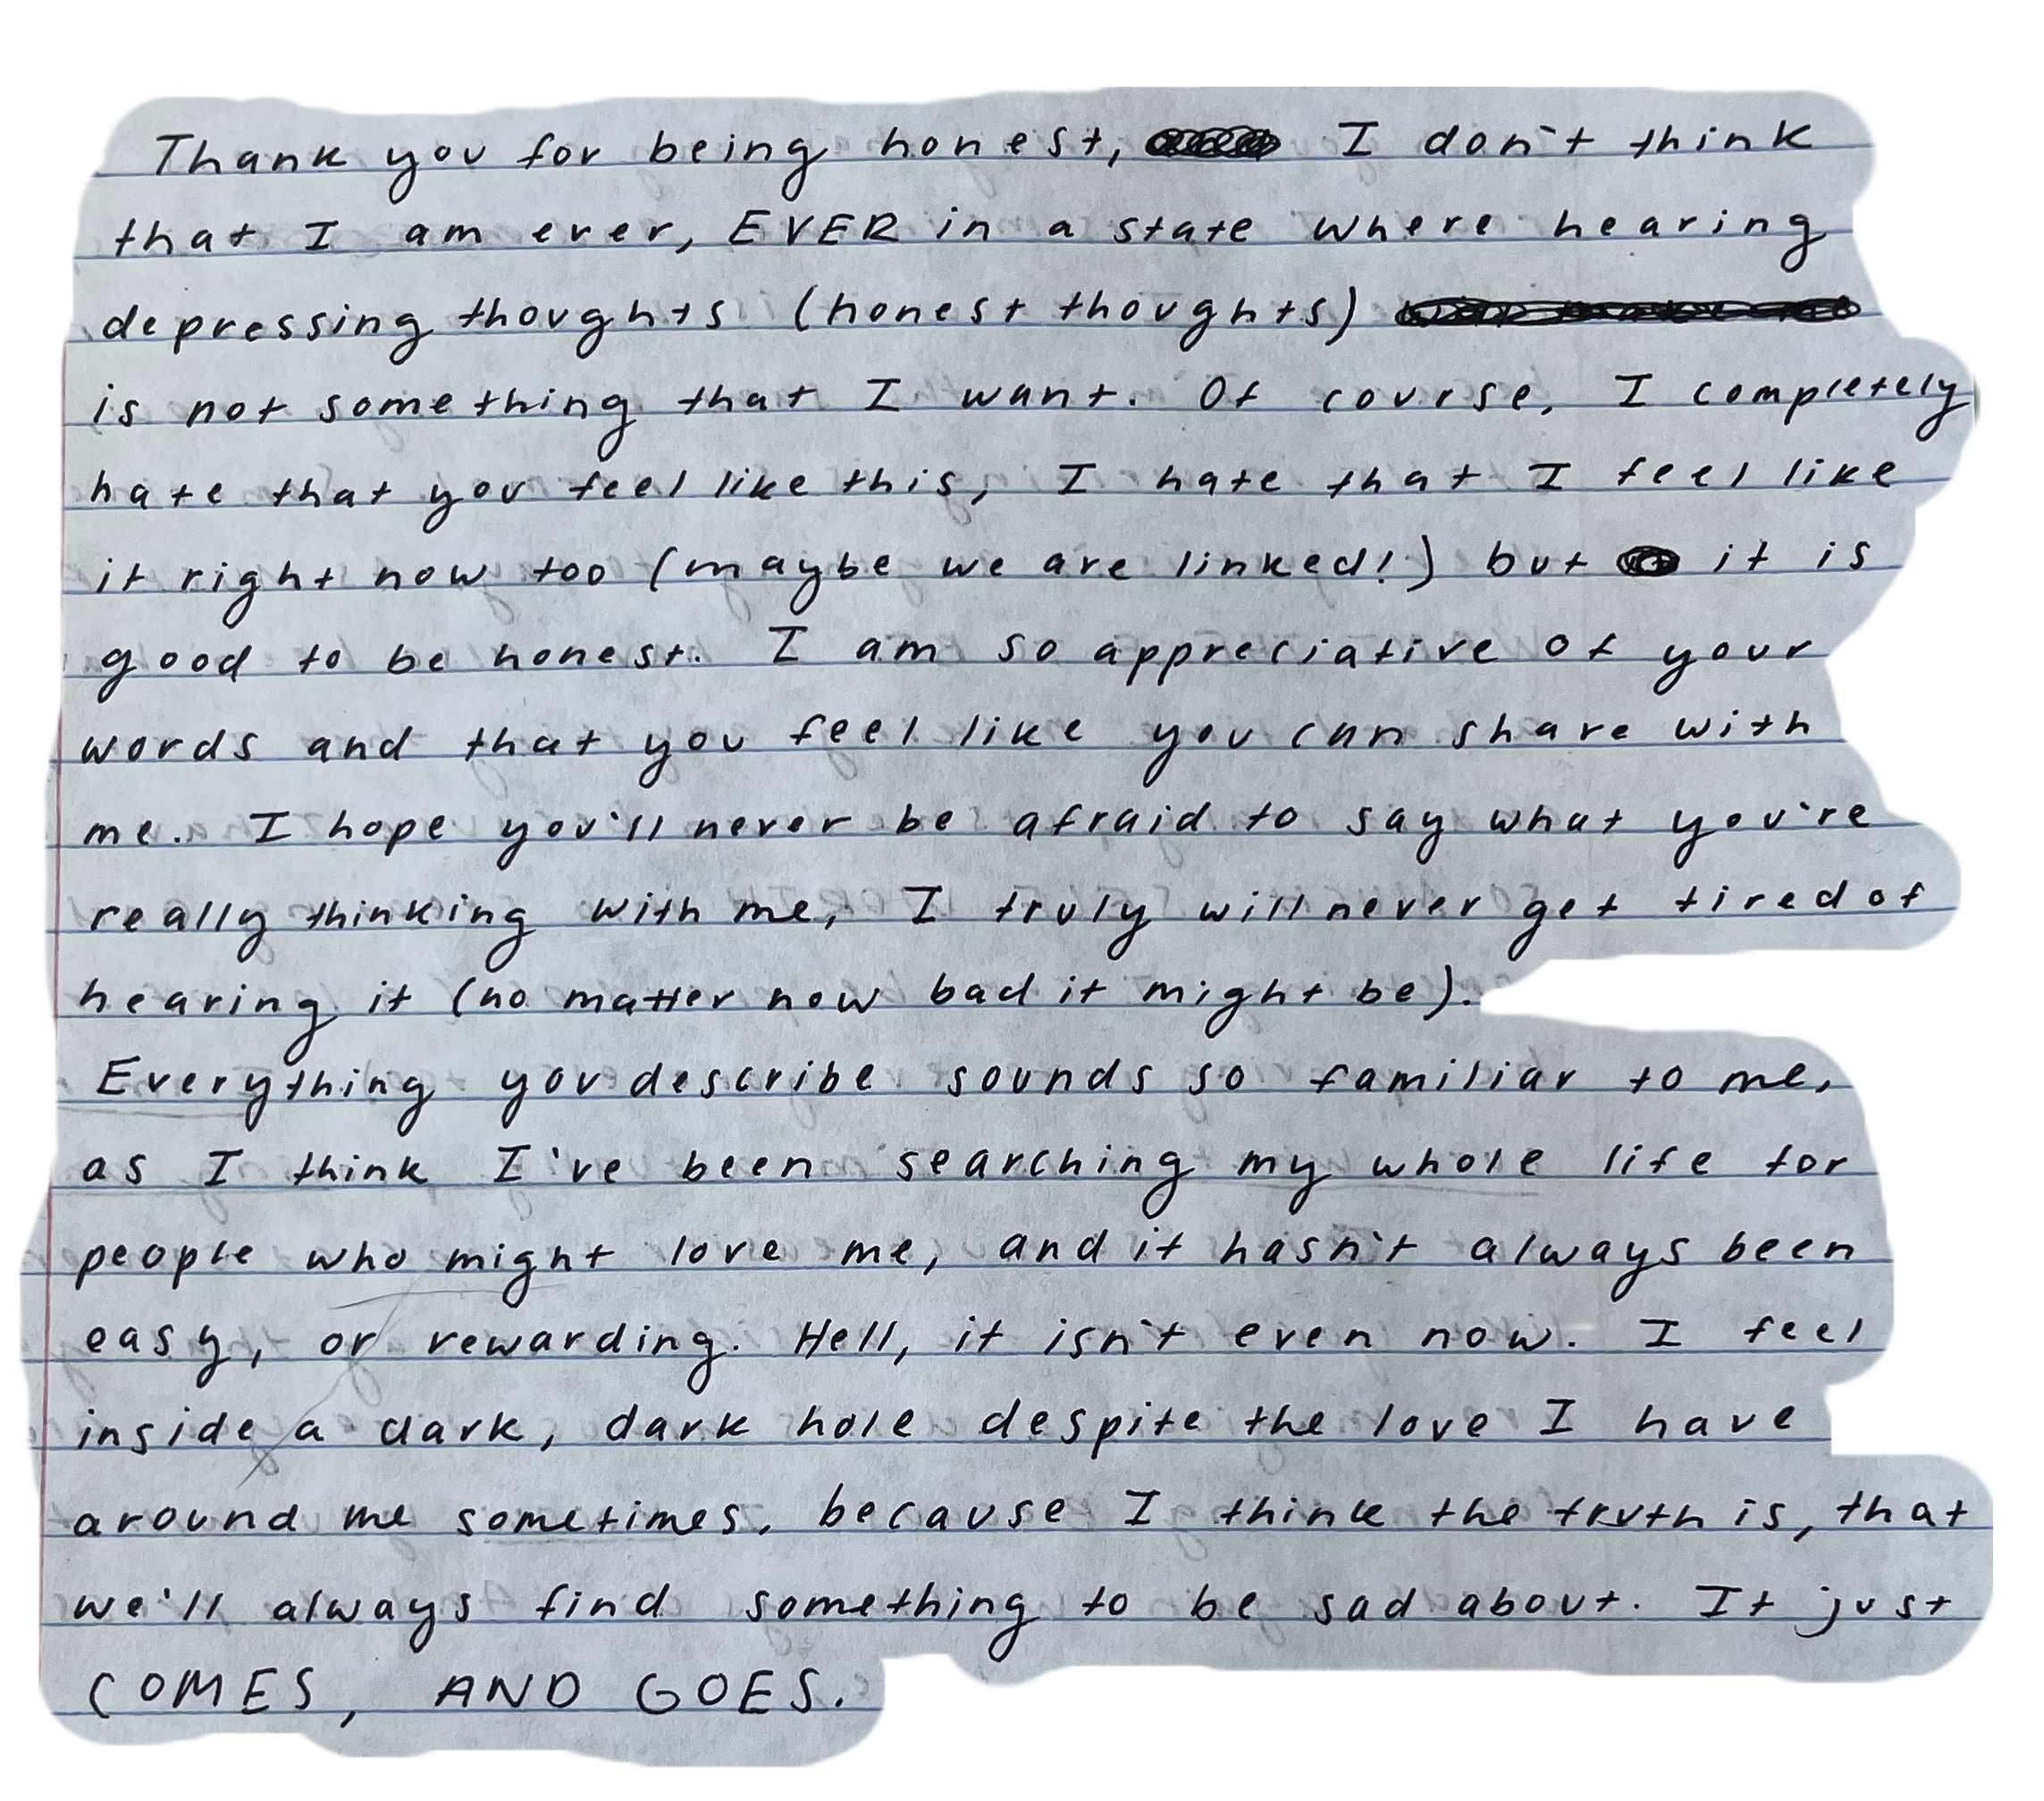 Thank you for being honest, I don't think
that I am ever, EVER in a state where hearing
depressing thoughts (honest thoughts)
is not something that I want. Of course, I completely
hate that you feel like this, I hate that I feel like
it right now too (maybe we are linked!) but it is
good to be honest. I am so appreciative of your
words and that you feel like you can share with
me. I hope you'll never be afraid to say what you're
really thinking with me, I truly will never get tired of
hearing it (no matter how bad it might be).
Everything you describe sounds so familiar to me,
as I think I've been searching my whole life for
people who might love me, and it hasn't always been
easy, or rewarding. Hell, it isn't even now. I feel
inside a dark, dark hole despite the love I have
around me sometimes, because I think the truth is, that
we'll always find something to be sad about. It just
COMES, AND GOES.